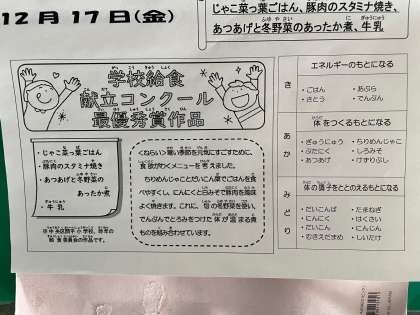 12月17日(金)
じゃこ菜っ葉ごはん、豚肉のスタミナ焼き、
あつあげと冬野菜のあったか煮、牛乳
学校給食
献立コンクール
最優秀賞作品
・じゃこ菜っ葉ごはん
・豚肉のスタミナ焼き
・あつあげと冬野菜の
あったか煮
・牛乳
<ねらい> 寒い季節を元気にすごすために、
食欲がわくメニューを考えました。
ちりめんじゃことだいこん葉でごはんを食
べやすくし、にんにくと白みそで豚肉を風味
よく焼きます。これに、旬の冬野菜を使い、
でんぷんでとろみをつけた体が温まる煮
ものを組み合わせています。
小学校、昨年の
給食委員会の作品です。
き
エネルギーのもとになる
・ごはん
・あぶら
・さとう
・でんぷん
あか
体をつくるもとになる
・ぎゅうにゅう
・ちりめんじゃこ
・ぶたにく
・しろみそ
・あつあげ
・けずりぶし
みどり
体の調子をととのえるもとになる
・だいこんば
・たまねぎ
・にんにく
・はくさい
・だいこん
・にんじん
・むきえだまめ
・しいたけ